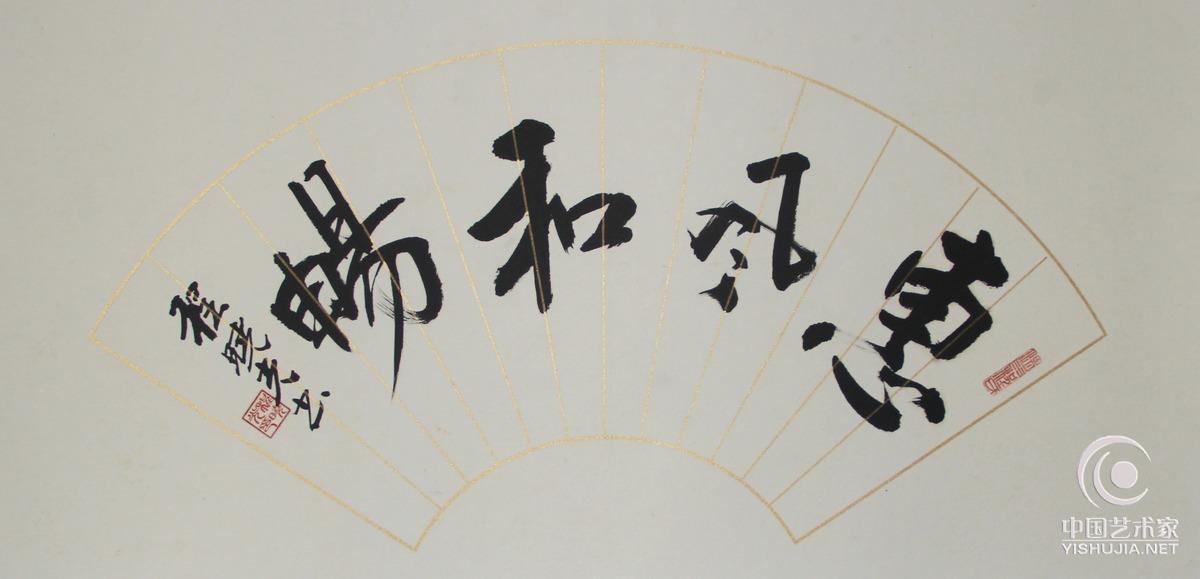 惠风和畅
程
书
中国艺术家
YISHUJIA.NET